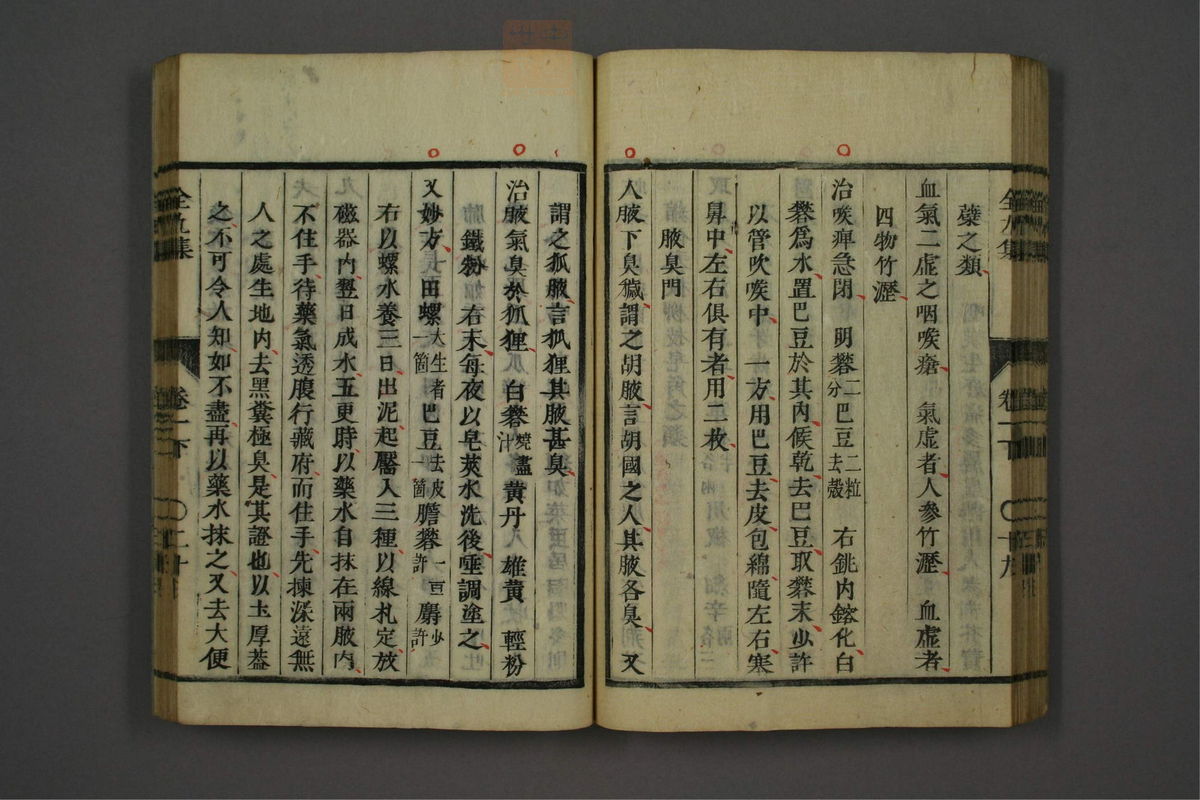 蘗之類
血氣二虛之咽喉瘡 氣虛者人參竹瀝 血虛者
四物竹瀝
治喉痺急閉 明礬二分 巴豆二粒去殼 右銚內鎔化白
礬爲水置巴豆於其內候乾去巴豆取礬末少許
以管吹喉中 一方用巴豆去皮包綿隨左右塞
鼻中左右俱有者用二枚
腋臭門
人腋下臭穢謂之胡腋言胡國之人其腋各臭又
全九集 卷一下 十九
謂之狐腋言狐狸其腋甚臭
治腋氣臭於狐狸 白礬燒盡汁 黄丹八 雄黄 輕粉
鐵粉 右末每夜以皂莢水洗後唾調塗之
又妙方 田螺大生者一箇 巴豆去皮一箇 膽礬一豆許 麝少許
右以螺水養三日出泥起靨入三種以線札定放
磁器內翌日成水五更時以藥水自抹在兩腋內
不住手待藥氣透腹行藏府而住手先揀深遠無
人之處生地內去黑糞極臭是其證也以土厚蓋
之不可令人知如不盡再以藥水抹之又去大便
全九集 卷一下 二十